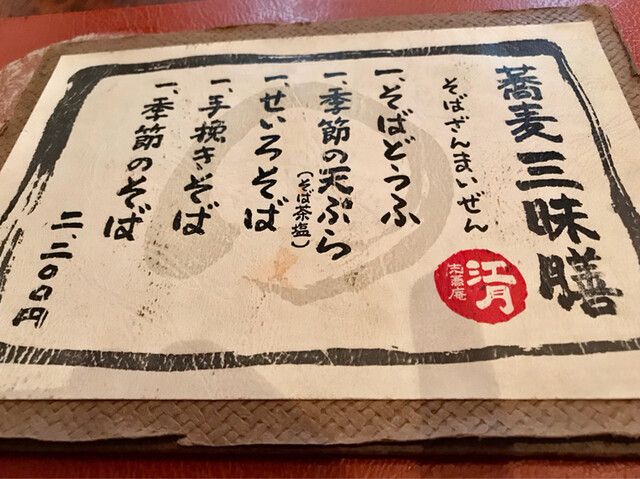 蕎麦三昧膳
そばざんまいぜん
江月
一、そばどうふ
一、季節の天ぷら
(そば茶塩)
一、せいろそば
一、手挽きそば
一、季節のそば
二、二〇〇円